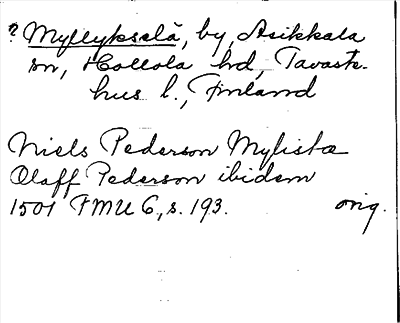 ? Myllykselä, by, Asikkala
sn, Hollola hd, Tavaste-
hus l., Finland
Niels Pederson Mylistæ
Olaff Pederson ibidem
1501 FMU 6, s. 193. orig.